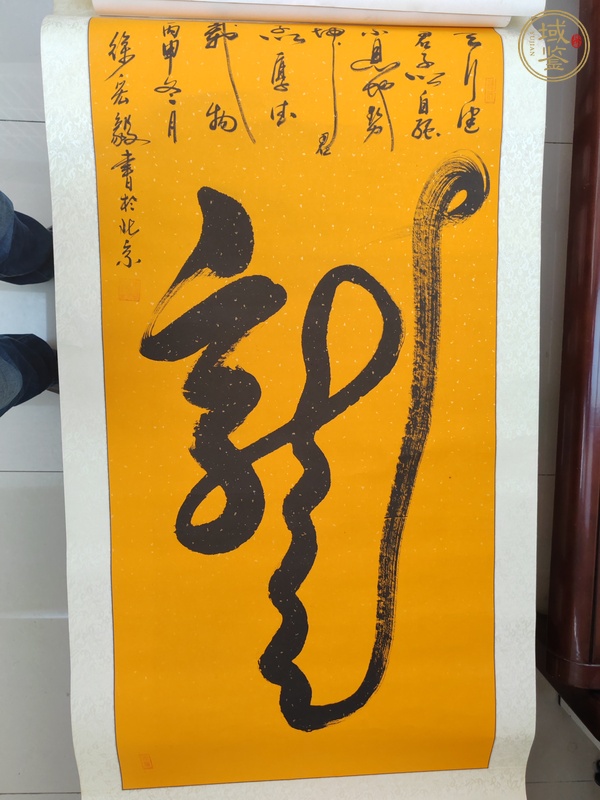 天行健
君子以自强
不息地势
坤君
子以厚德
載物
丙申冬月
徐宏毅書於北京
龍
域鉴
YUJIAN